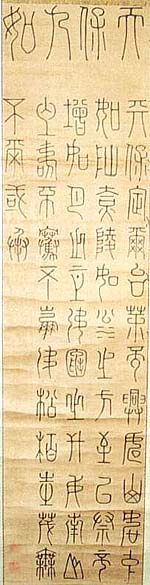 天保九如
天保定爾以莫不興如山如阜
如岡如陵如川之方至以莫不
增如月之恆如日之升如南山
之壽不騫不崩如松柏之茂無
不爾或承